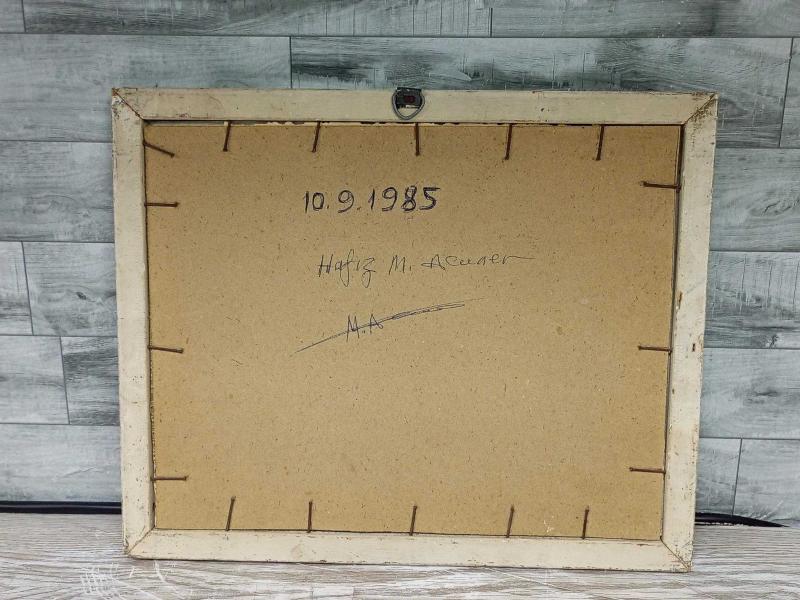 10.9.1985
Hafiz M.
M.A